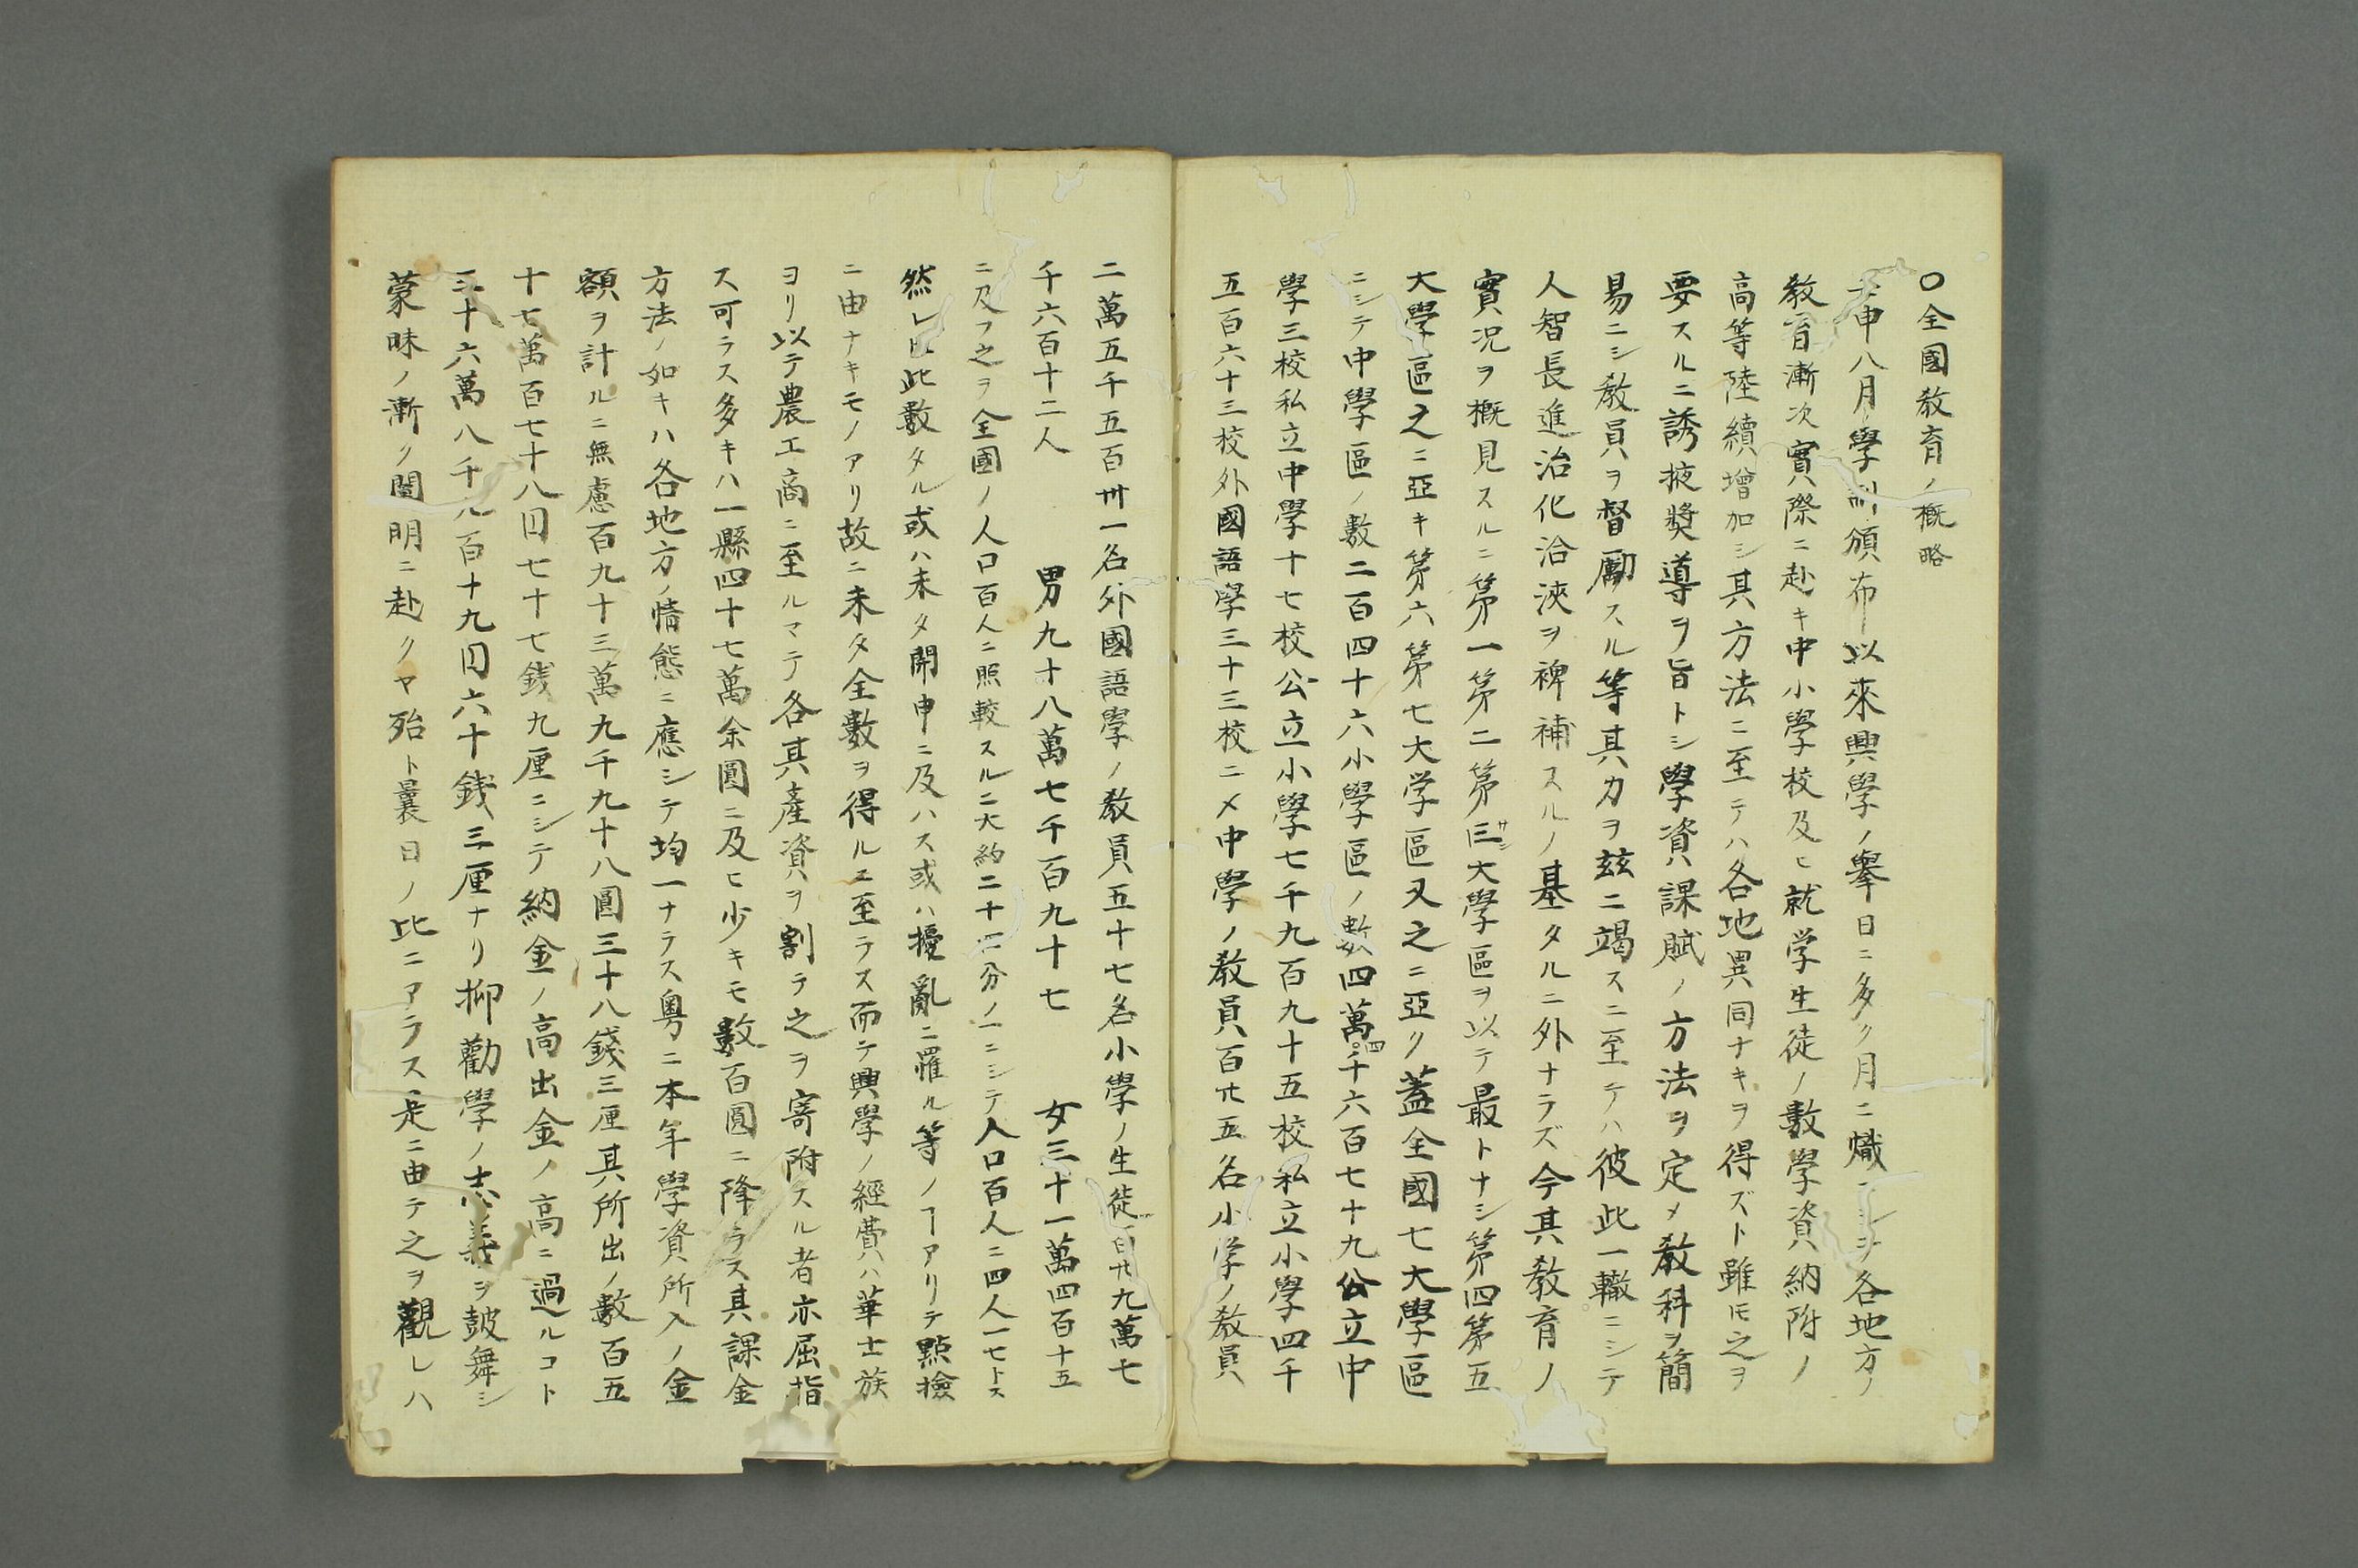 ○全國教育ノ概略
壬申八月學制頒布以來興學ノ擧日ニ多ク月ニ熾ニシテ各地方ノ
教育漸次實際ニ赴キ中小學校及ヒ就学生徒ノ數學資納附ノ
高等陸續增加シ其方法ニ至テハ各地異同ナキヲ得ズト雖モ之ヲ
要スルニ誘掖奬導ヲ旨トシ學資課賦ノ方法ヲ定メ教科ヲ簡
易ニシ教員ヲ督勵スル等其力ヲ玆ニ竭スニ至テハ彼此一轍ニシテ
人智長進治化洽浹ヲ裨補スルノ基タルニ外ナラズ今其教育ノ
實況ヲ概見スルニ第一第二第三大學區ヲ以テ最トナシ第四第五
大學區之ニ亞キ第六第七大学區又之ニ亞ク蓋全國七大學區
ニシテ中學區ノ數二百四十六小學區ノ數四萬四千六百七十九公立中
學三校私立中學十七校公立小學七千九百九十五校私立小學四千
五百六十三校外國語學三十三校ニ〆中學ノ教員百卄五名小学ノ教員
二萬五千五百卅一名外國語學ノ教員五十七名小學ノ生徒百卄九萬七
千六百十二人 男九十八萬七千百九十七 女三十一萬四百十五
ニ及フ之ヲ全國ノ人口百人ニ照較スルニ大約二十四分ノ一ニシテ人口百人ニ四人一七トス
然レ𪜈此數タル或ハ未タ開申ニ及ハス或ハ擾亂ニ罹ル等ノヿアリテ點撿
ニ由ナキモノアリ故ニ未タ全數ヲ得ルニ至ラス而テ興學ノ經費ハ華士族
ヨリ以テ農工商ニ至ルマテ各其產資ヲ割テ之ヲ寄附スル者亦屈指
ス可ラス多キハ一縣四十七萬余圓ニ及ヒ少キモ數百圓ニ降ラス其課金
方法ノ如キハ各地方ノ情態ニ應シテ均一ナラス粤ニ本年學資所入ノ金
額ヲ計ルニ無慮百九十三萬九千九十八圓三十八錢三厘其所出ノ數百五
十七萬百七十八円七十七銭九厘ニシテ納金ノ高出金ノ高ニ過ルコト
三十六萬八千九百十九円六十銭三厘ナリ抑勸學ノ志義ヲ鼓舞シ
蒙昧ノ漸ク闓明ニ赴クヤ殆ト曩日ノ比ニアラス是ニ由テ之ヲ觀レハ